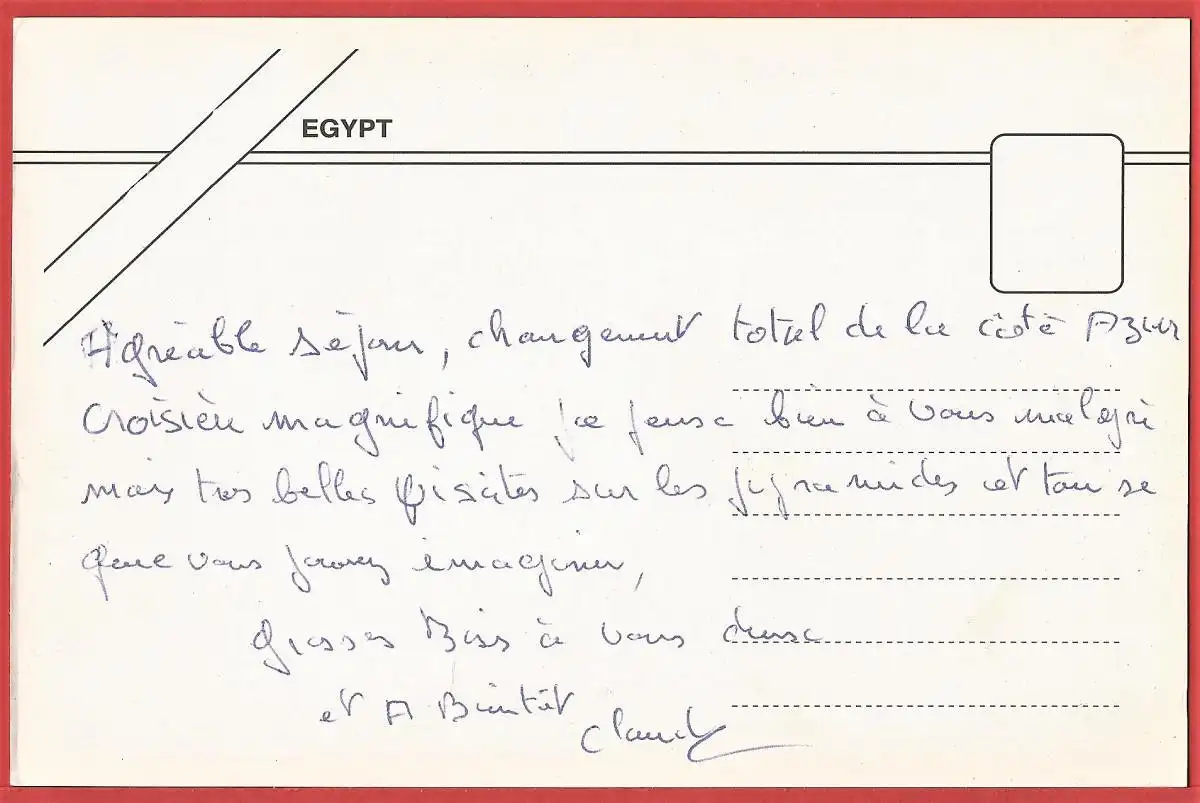 EGYPT
Agréable séjour, changement total de la côté Azur
Croisière magnifique je pense bien à vous malgré
mais très belles visites sur les pyramides et tou se
que vous pouvez imaginer,
grosses Biss à vous deux
et A Bientôt
Claudy